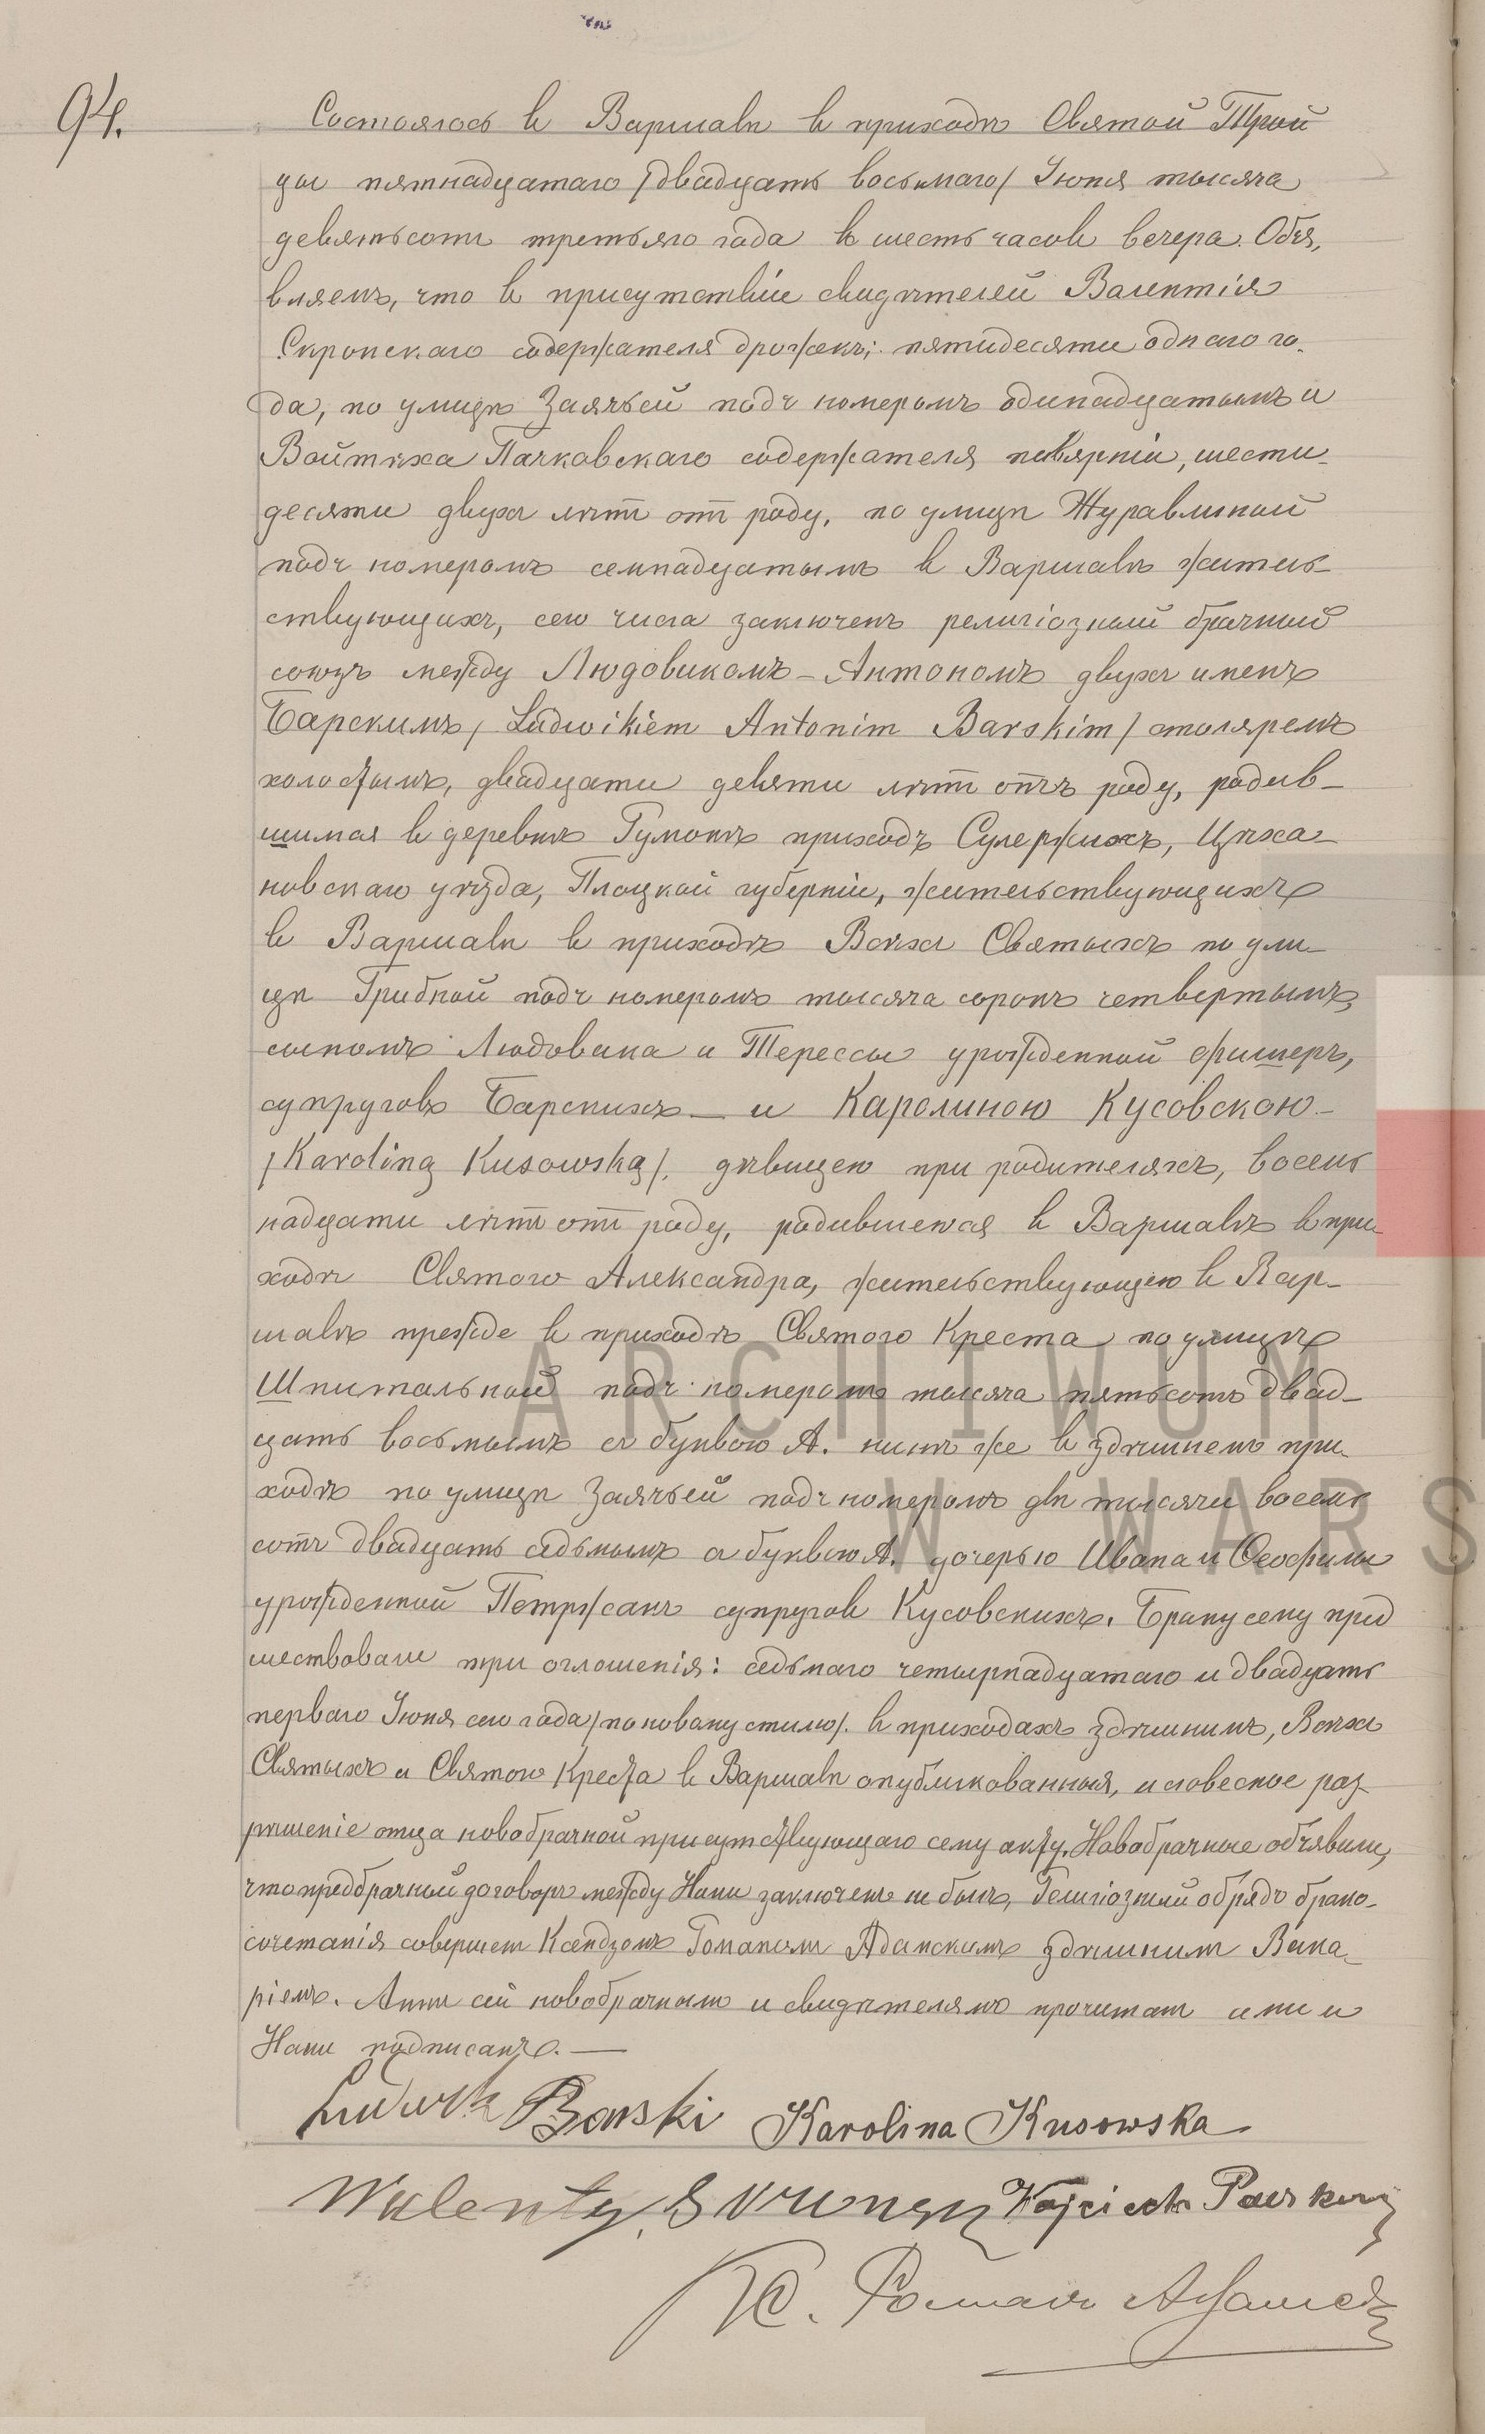 94.
Состоялось въ Варшавѣ въ приходѣ Святой Трой
цы пятнадцатаго /двадцать восьмаго/ Іюня тысяча
девятьсотъ третьяго года въ шесть часовъ вечера. Объя,
вляемъ, что въ присутствіи свидѣтелей Валентія
Скронскаго содержателя дрожекъ; пятидесяти одного го,
да, по улицѣ Заячьей подъ номеромъ одинадцатымъ и
Войтѣха Пачковскаго содержателя пивярніи, шести-
десяти двухъ лѣтъ отъ роду, по улицѣ Журавлиной
подъ номеромъ семнадцатымъ въ Варшавѣ житель
ствующихъ, сего числа заключенъ религіозный брачный
союзъ между Людовикомъ-Антономъ двухъ именъ
Барскимъ / Ludwikiem Antonim Barskim / столяремъ
холостымъ, двадцати девяти лѣтъ отъ роду, родив-
шимся въ деревнѣ Гумовѣ приходѣ Сулержижъ, Цѣха-
новскаго уѣзда, Плоцкой губерніи, жительствующихъ
въ Варшавѣ въ приходѣ Всѣхъ Святыхъ по ули-
цѣ Грибной подъ номеромъ тысяча сорокъ четвертымъ,
сыномъ Людовика и Терессы урожденной Фишеръ,
супруговъ Барскихъ — и Каролиною Кусовскою-
/Karoliną Kusowską/, дѣвицею при родителяхъ, восемь
надцати лѣтъ отъ роду, родившеюся въ Варшавѣ въ при
ходѣ Святого Александра, жительствующею въ Вар-
шавѣ прежде въ приходѣ Святого Креста по улицѣ
Шпитальной подъ номеромъ тысяча пятьсотъ двад-
цать восьмымъ съ буквою А. нынѣ же въ здѣшнемъ при-
ходѣ по улицѣ Заячьей подъ номеромъ двѣ тысячи восемь
сотъ двадцать седьмымъ съ буквою А. дочерью Ивана и Ѳеофилы
урожденной Петржакъ супруговъ Кусовскихъ. Браку сему пред
шествовали три оглошенія: седьмаго четырнадцатаго и двадцать
перваго Іюня сего года /по новому стилю/. въ приходахъ здѣшнимъ, Всѣхъ
Святыхъ и Святого Креста въ Варшавѣ опубликованныя, и словесное раз-
рѣшеніе отца новобрачной присутствующаго сему акту. Новобрачные объявили,
что предбрачный договоръ между Ними заключенъ не былъ, Религіозный обрядъ брако-
сочетанія совершенъ Ксендзомъ Романомъ Адамскимъ здѣшнимъ Вика-
ріемъ. Актъ сей новобрачнымъ и свидѣтелямъ прочитанъ ими и
Нами подписанъ. —
Ludwik Barski Karolina Kusowska
Walenty Wojciech
Кс. Романъ
ARCHIWUM
W WARS